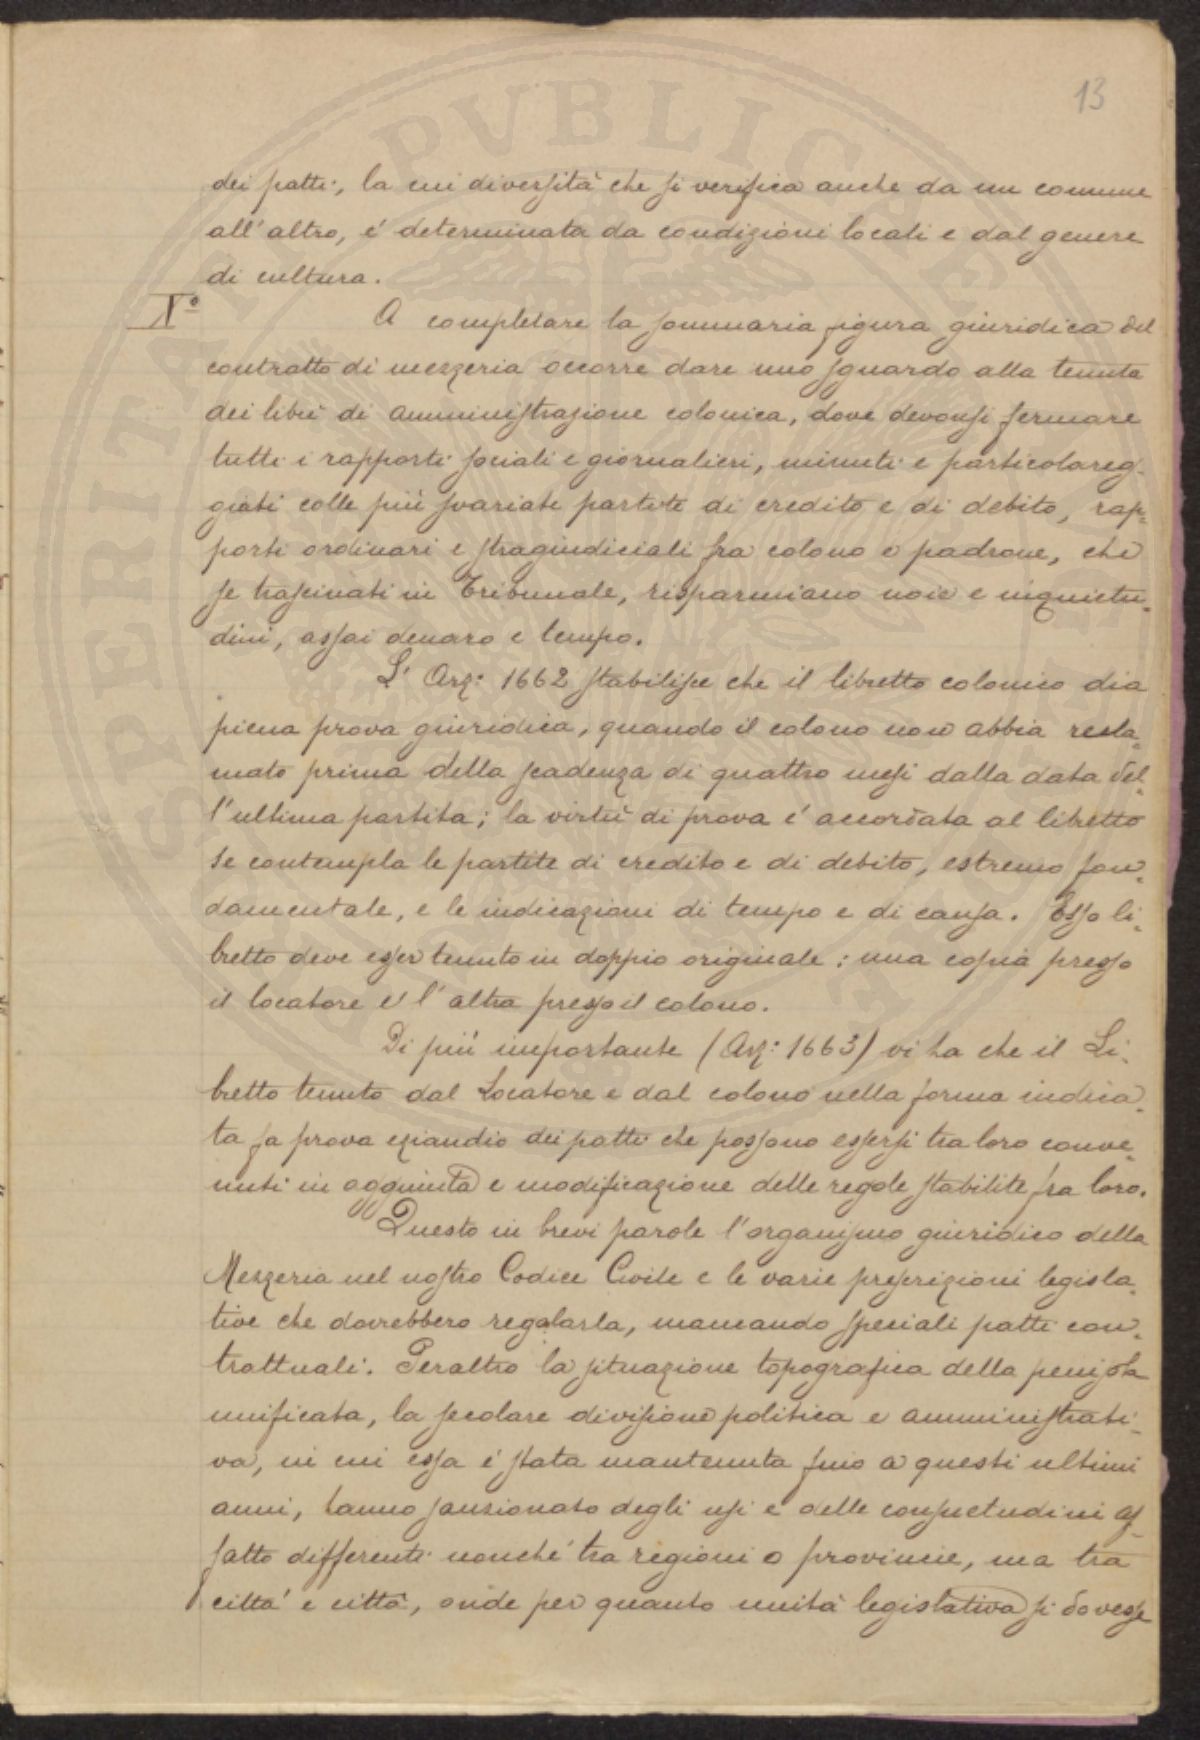 13
dei patti, la cui diversità che si verifica anche da un comune
all'altro, é determinata da condizioni locali e dal genere
di cultura.
V°
A completare la sommaria figura giuridica del
contratto di mezzeria occorre dare uno sguardo alla tenuta
dei libri di amministrazione colonica, dove devonsi fermare
tutti i rapporti sociali e giornalieri, minuti e particolareg-
giati colle più svariate partite di credito e di debito, rap-
porti ordinari e stragiudiciali fra colono e padrone, che
se trascinati in Tribunale, risparmiano noie e inquietu-
dini, assai denaro e tempo.
L' Arz: 1662 stabilisce che il libretto colonico dia
piena prova giuridica, quando il colono non abbia recla-
mato prima della scadenza di quattro mesi dalla data del-
l'ultima partita; la virtù di prova é accordata al libretto
se contempla le partite di credito e di debito, estremo fon-
damentale, e le indicazioni di tempo e di causa. Esso li-
bretto deve esser tenuto in doppio originale: una copia presso
il locatore e l'altra presso il colono.
Di piú importante (Arz: 1663) vi ha che il Li-
bretto tenuto dal Locatore e dal colono nella forma indica-
ta fa prova eziandio dei patti che possono essersi tra loro conve-
nuti in aggiunta e modificazione delle regole stabilite fra loro.
Questo in brevi parole l'organismo giuridico della
Mezzeria nel nostro Codice Civile e le varie prescrizioni legisla-
tive che dovrebbero regolarla, mancando speciali patti con-
trattuali. Peraltro la situazione topografica della penisola
unificata, la secolare divisione politica e amministrati-
va, in cui essa é stata mantenuta fino a questi ultimi
anni, hanno sanzionato degli usi e delle consuetudini af-
fatto differenti nonché tra regioni o provincie, ma tra
cittá e cittá, onde per quanto unitá legislativa si dovesse